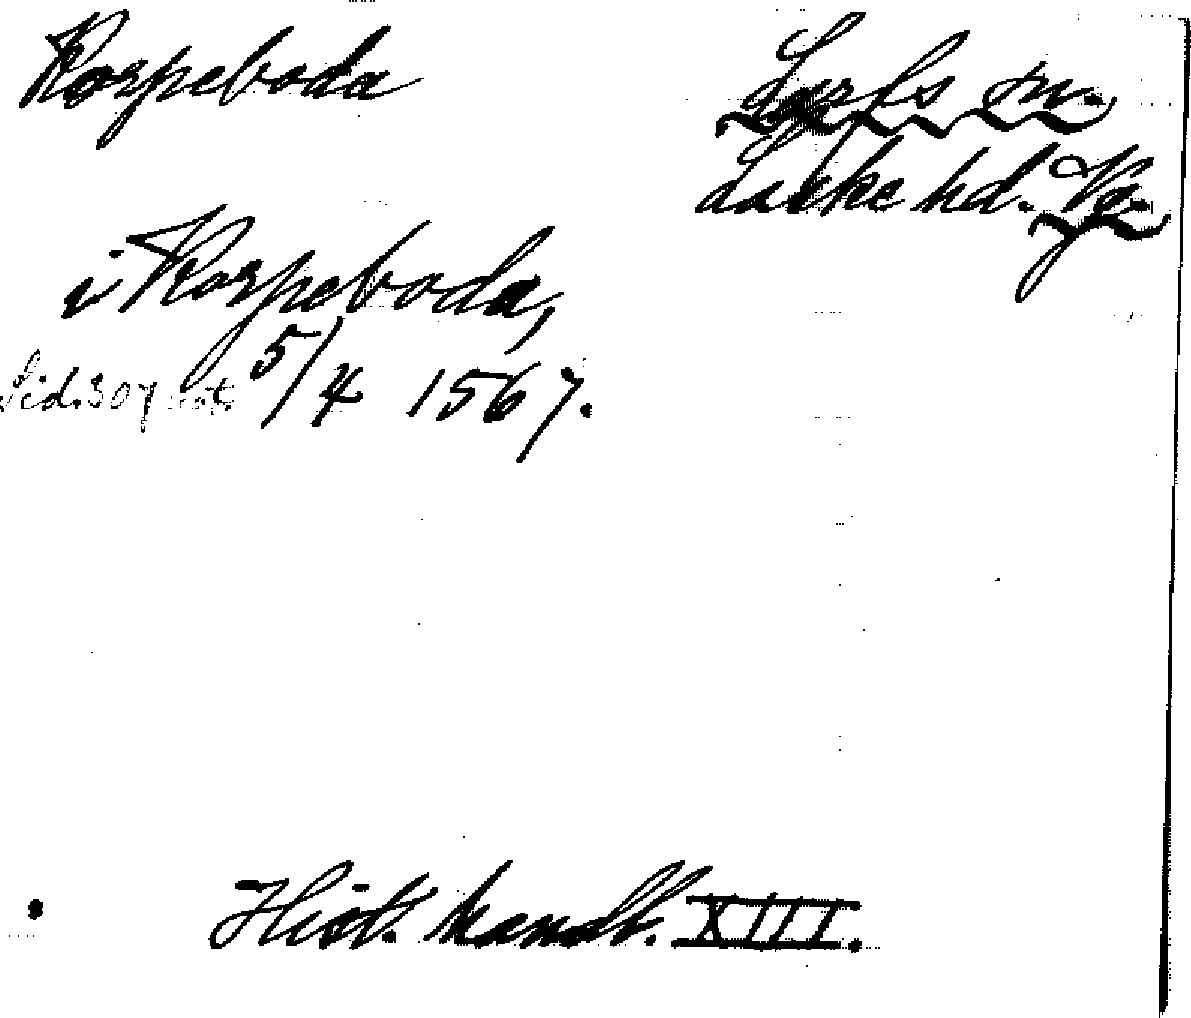 Korpeboda
Larfs sn.
Laske hd. Vg.
i Korpeboda,
Sid. 307 not. 5/4 1567.
Hist. handl. XIII.